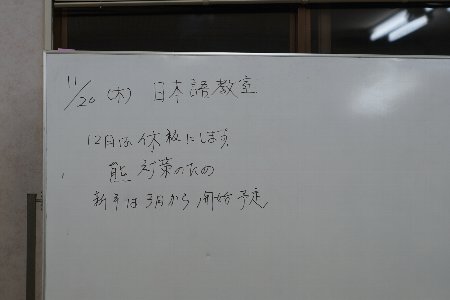 11/20 (木) 日本語教室
12月は休教にします
熊対策のため
新年は3月から開始予定